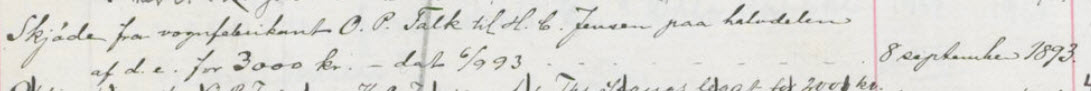 Skjøde fra vognfabrikant O. P. Falk til H. C. Jensen paa halvdelen
af d. e. for 3000 kr. - dat 6/9 93 - - - - - - - 8 september 1893.